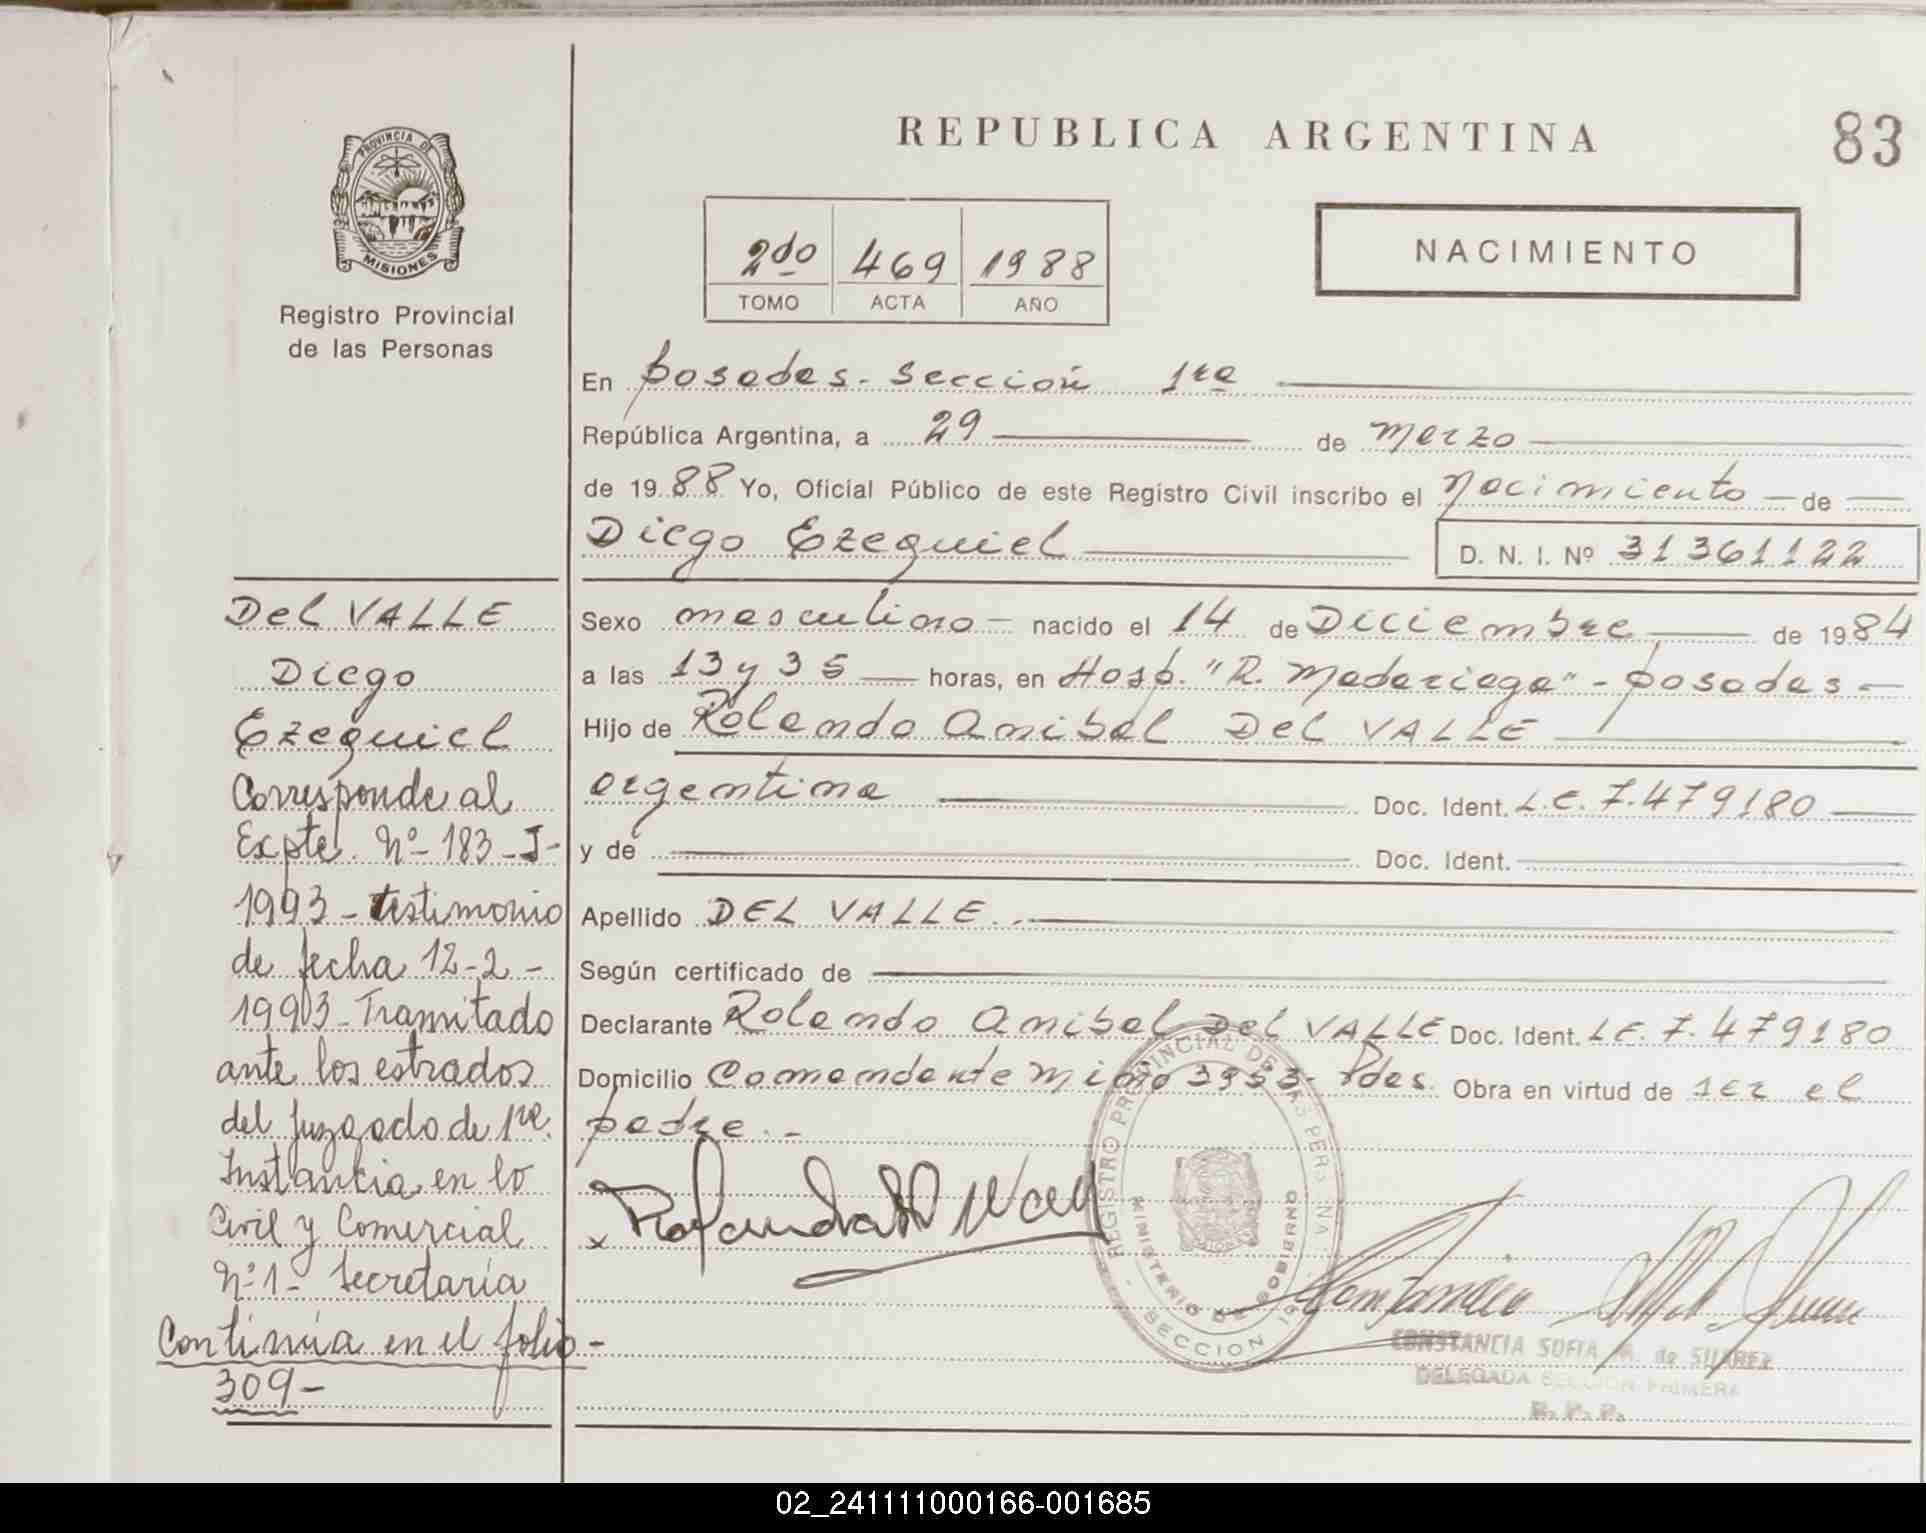 PROVINCIA DE
MISIONES
Registro Provincial
de las Personas
REPUBLICA ARGENTINA
83
2do 469 1988
TOMO ACTA AÑO
NACIMIENTO
En Posadas - Sección 1ra
República Argentina, a 29 de Marzo
de 1988 Yo, Oficial Público de este Registro Civil inscribo el Nacimiento de
Diego Ezequiel D. N. I. Nº 31361122
Sexo masculino - nacido el 14 de Diciembre de 1984
a las 13 y 35 horas, en Hosp. "R. Madariaga" - Posadas -
Hijo de Rolando Anibal Del VALLE
argentina Doc. Ident. L.E. 7.479180
y de Doc. Ident.
Apellido DEL VALLE.
Según certificado de
Declarante Rolando Anibal Del VALLE Doc. Ident. LE. 7.479180
Domicilio Comandante Miño 3953 - Pdas. Obra en virtud de ser el
padre. -
Del VALLE
Diego
Ezequiel
Corresponde al
Expte. Nº 183 - J -
1993 - testimonio
de fecha 12-2-
1993 - Tramitado
ante los estrados
del Juzgado de 1ra.
Instancia en lo
Civil y Comercial
Nº 1 - Secretaría
Continúa en el folio -
309 -
REGISTRO PROVINCIAL DE LAS PERSONAS
MINISTERIO DE GOBIERNO
SECCION 1ª
CONSTANCIA SOFIA M. de SUAREZ
DELEGADA SECCION PRIMERA
R. P. P.
02_241111000166-001685